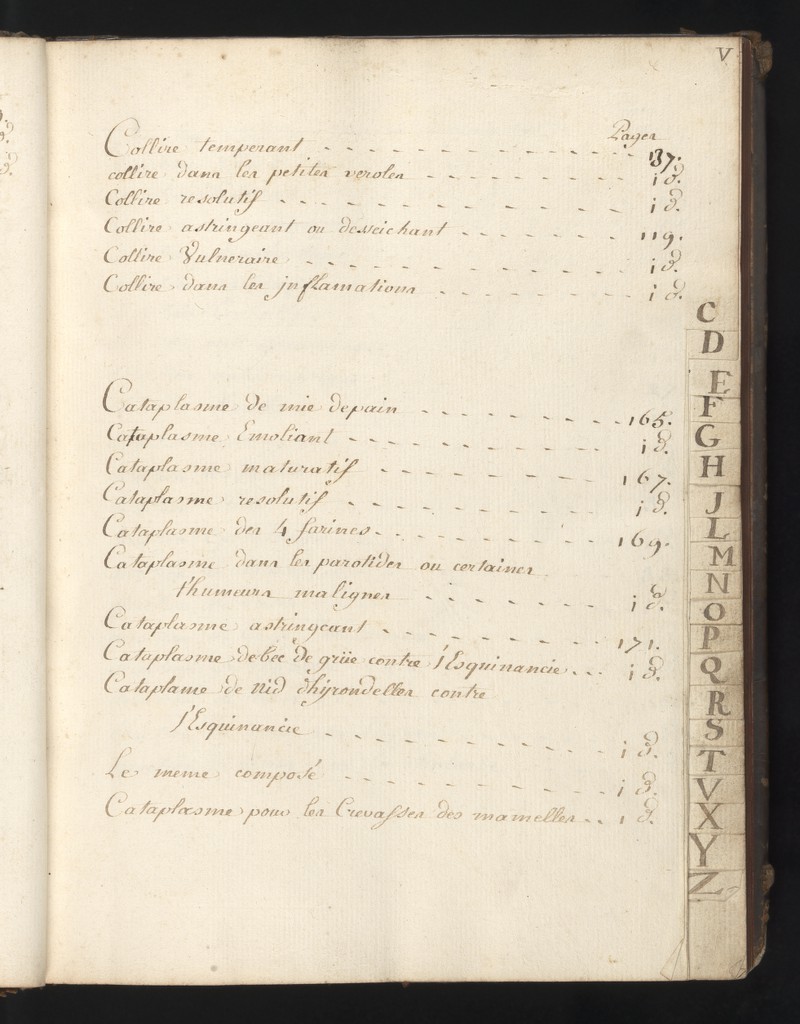 V
Pages
Collire temperant - - - - - - - - - - - 137.
collire dans les petites veroles - - - - - - - id.
Collire resolutif - - - - - - - - - - id.
Collire astringeant ou desseichant - - - - - - 119.
Collire Vulneraire - - - - - - - - - id.
Collire dans les jnflamations - - - - - - id.
Cataplasme de mie depain - - - - - - - 165.
Cataplasme Emoliant - - - - - - - - - id.
Cataplasme maturatif - - - - - - - - 167.
Cataplasme resolutif - - - - - - - - id.
Cataplasme des 4 farines - - - - - - - 169.
Cataplasme dans les parotides ou certaines
thumeurs malignes - - - - - - id.
Cataplasme astringeant - - - - - - - 171.
Cataplasme de bec de grüe contre l'Esquinancie - - - id.
Cataplame de nid d'hyrondelles contre
l'Esquinancie - - - - - - - - id.
Le meme composé - - - - - - - - id.
Cataplasme pour les Crevasses des mamelles - - id.
C
D
E
F
G
H
J
L
M
N
O
P
Q
R
S
T
V
X
Y
Z